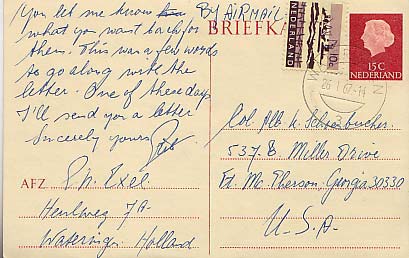 You let me know BY AIRMAIL
what you want back for
them. This was a few words
to go along with the
letter. One of these days
I'll send you a letter
Sincerely yours
BRIEFKA
NEDERLAND
15 C
NEDERLAND
AFZ
Ph. Exel
Heulweg 7A
Wateringen Holland
Col. Alb. K. Schonbucher
537 B Miller Drive
Ft. Mc Pherson, Georgia 30330
U.S.A.